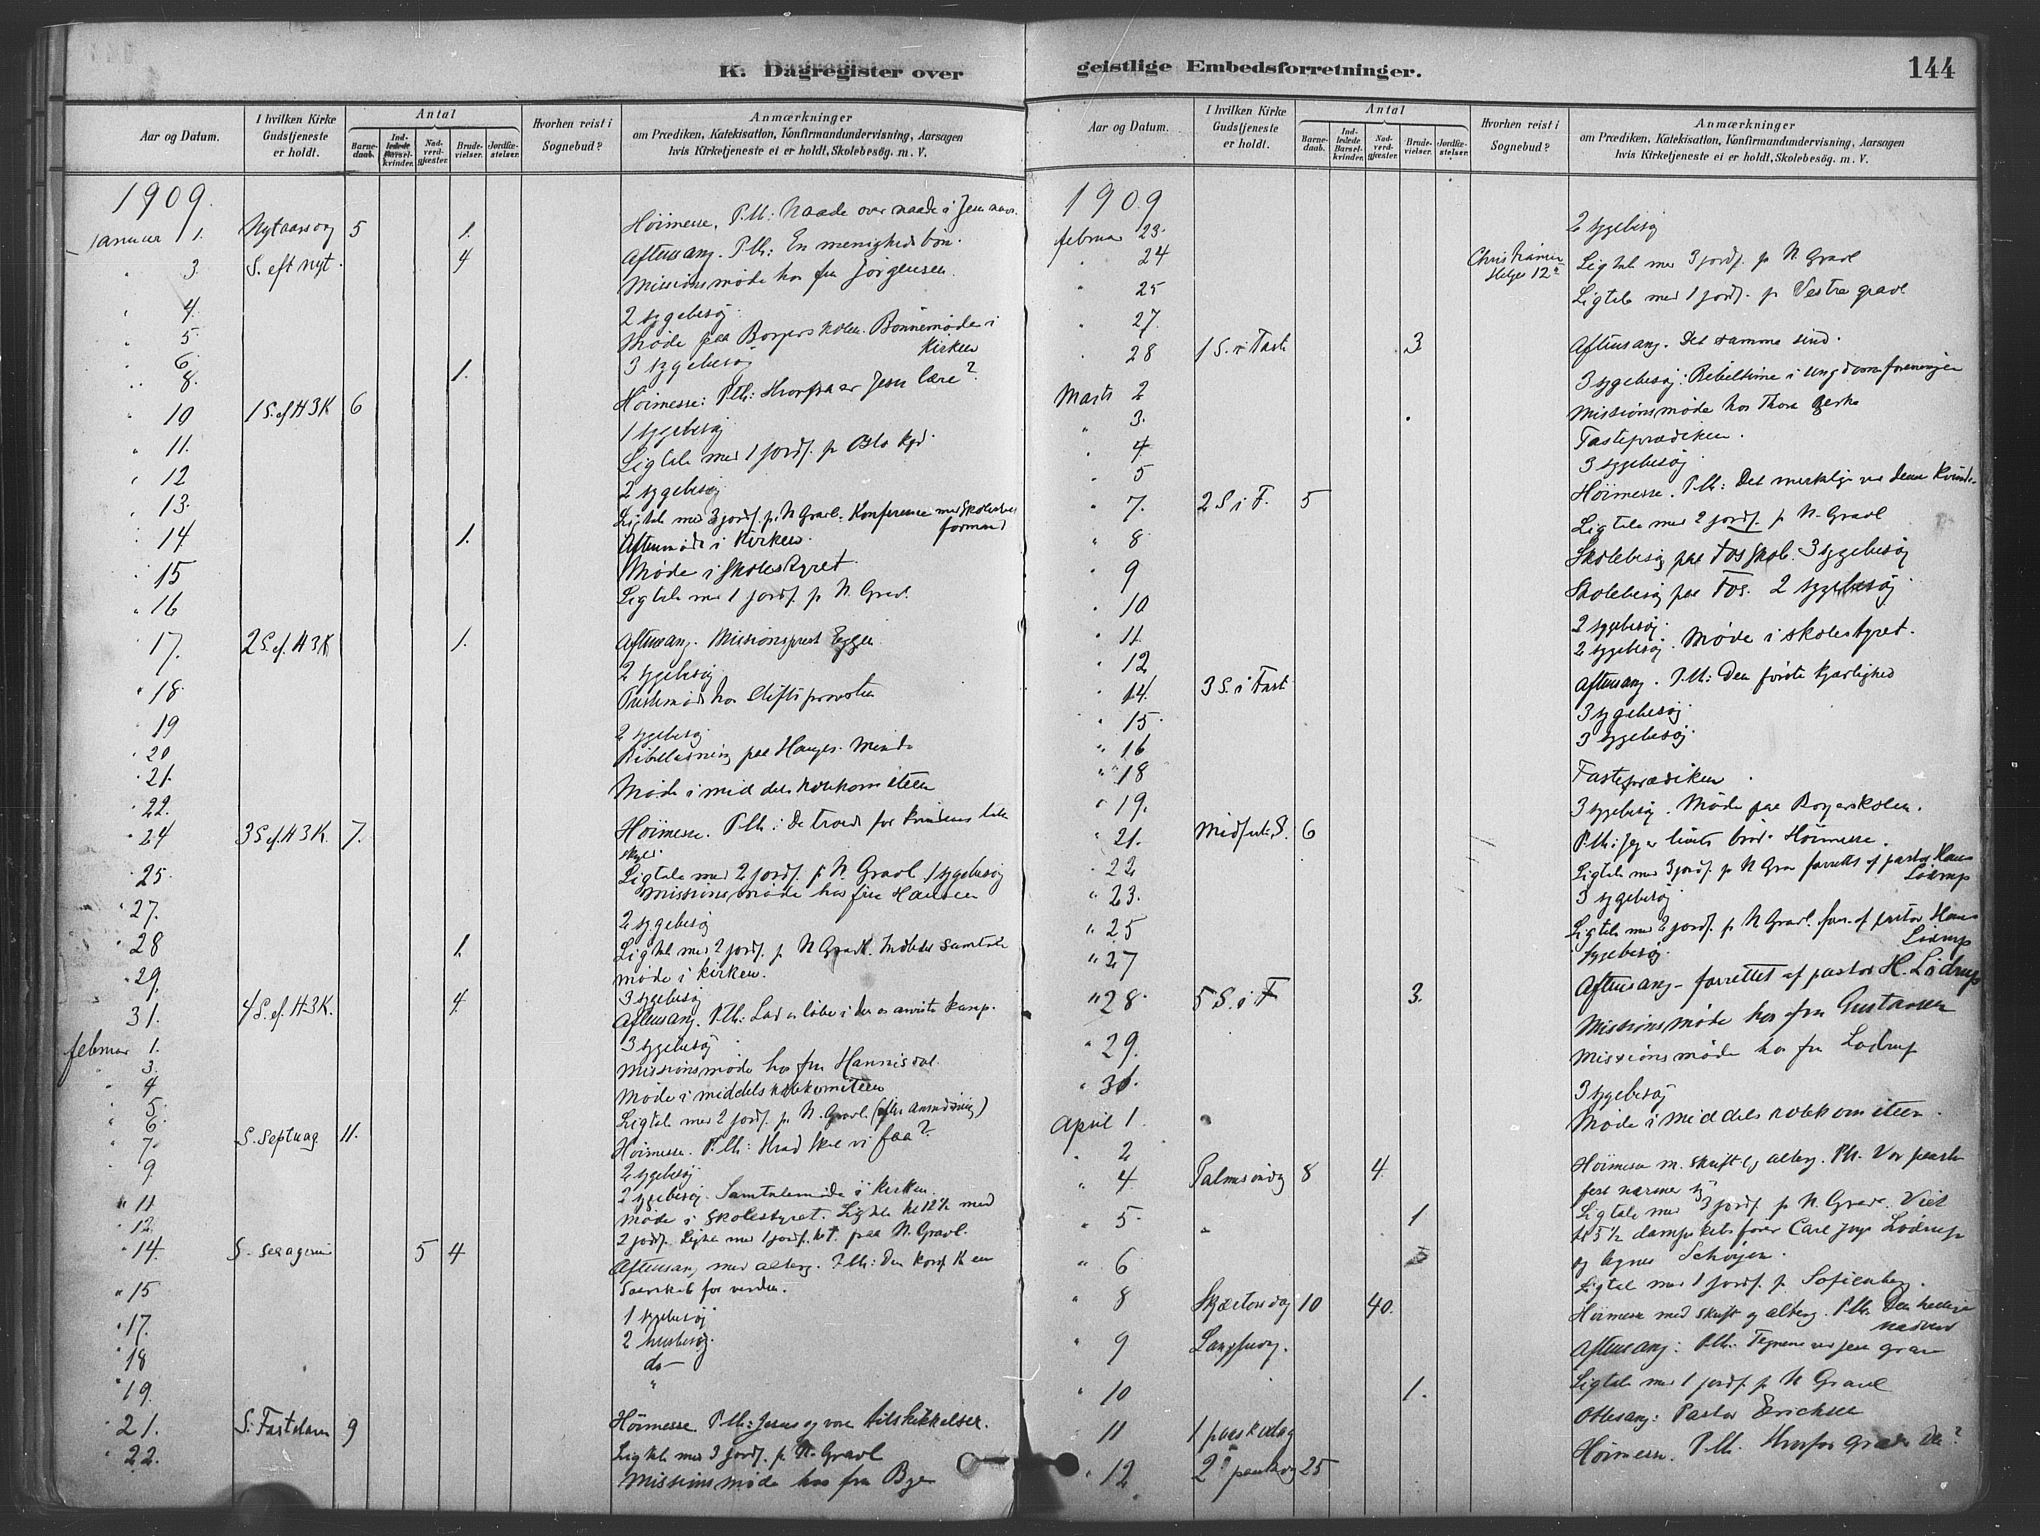 K. Dagregister over geistlige Embedsforretninger.
144
Aar og Datum.
I hvilken Kirke Gudstjeneste er holdt.
Antal
Barnedaab.
Indledede Barselkvinder.
Nadverdgjester.
Brudevielser.
Jordfæstelser.
Hvorhen reist i Sognebud?
Anmærkninger
om Prædiken, Katekisation, Konfirmandundervisning, Aarsagen
hvis Kirketjeneste ei er holdt, Skolebesøg. m. V.
1909.
Januar 1. Nytaarsdag 5 1. Höimesse. P. Th: Naade over naade i Jesu navn.
" 3. S. eft nyt. 4 Aftensang. P. Th: En menigheds bön.
Missionsmøde hos fru Jørgensen.
" 4. 2 sygebesøg.
" 5. Møde paa Borgerskolen. Bönnemøde i Kirken
" 6. 3 sygebesøg
" 8. 1.
" 10 1 S. ef H 3 K 6 Höimesse: P. Th: Hvorfra er Jesu lære?
" 11. 1 sygebesøg
" 12 Ligtale med 1 jordf. p Oslo kgd.
" 13. 2 sygebesøg
" 14 1. Ligtale med 3 jordf. p. N Gravl. Konference med Skolestyrets formand
Aftenmøde i Kirken.
" 15 Møde i Skolestyret.
" 16 Ligtale med 1 jordf. p N. Gravl.
" 17. 2 S. ef. H 3 K 1. Aftensang. Missionsprest Eggen.
" 18. 2 sygebesøg
" 19 Prestemøde hos Stiftsprovsten
" 20 2 sygebesøg.
" 21. Bibellæsning paa Hauges Minde
" 22. Møde i middelskolekomiteen
" 24 3 S ef. H 3 K. 7. Höimesse. P. Th:
" 25. Ligtale med 2 jordf. p N. Gravl. 1 sygebesøg
Missionsmøde hos fru Hansen
" 27. 2 sygebesøg
" 28 1. Ligtale med 2 jordf. p N Gravl.
møde i kirken.
" 29. 3 sygebesøg
" 31. 4 S. ef. H 3 K. 4. Aftensang. P. Th: Lad os løbe i den os anviste kamp.
februar 1. 3 sygebesøg
" 3. Missionsmøde hos fru Hannisdal
" 4 Møde i middelskolekomiteen
" 5. Ligtale med 2 jordf. p N. Gravl.
" 6.
" 7. S. Septuag 11. Höimesse. P. Th: Hvad skal vi faa?
" 9 2 sygebesøg
" 11 2 sygebesøg. Samtalemøde i kirken.
" 12. Møde i Skolestyret. Ligtale kl 12½ med
2 jordf. Ligtale med 1 jordf. paa N. Gravl.
" 14. S. sexagesima 5 4 Aftensang med alterg. P. Th: Den korsf. K en
Daarskab for verden.
" 15 1 sygebesøg
" 17. 2 husbesøg.
" 18 do
" 19. "
" 21. S. Fastelavn 9 Höimesse. P. Th: Jesus og vore tilskikkelser.
" 22. Ligtale med 3 jordf. p N. Gravl
Missionsmøde hos fru Bye
K. Dagregister over geistlige Embedsforretninger.
Aar og Datum.
I hvilken Kirke Gudstjeneste er holdt.
Antal
Barnedaab.
Indledede Barselkvinder.
Nadverdgjester.
Brudevielser.
Jordfæstelser.
Hvorhen reist i Sognebud?
Anmærkninger
om Prædiken, Katekisation, Konfirmandundervisning, Aarsagen
hvis Kirketjeneste ei er holdt, Skolebesøg. m. V.
1909
februar 23. 2 sygebesøg
" 24 Ligtale med 3 jordf. p N. Gravl
" 25 Ligtale med 1 jordf. p Vestre gravl
" 27.
" 28 1 S. i Faste 3 Aftensang. Det samme sind.
Marts 2 3 sygebesøg. Bibeltime i ungdomsforeningen
" 3. Missionsmøde hos Thora
" 4 Fasteprædiken.
" 5 3 sygebesøg
" 7. 2 S i F. 5 Höimesse. P. Th:
" 8 Ligtale med 2 jordf. p N. Gravl
" 9 Skolebesøg paa Fos skole. 3 sygebesøg
" 10 Skolebesøg paa Fos. 2 sygebesøg
" 11. 2 sygebesøg.
" 12 2 sygebesøg. Møde i skolestyret.
" 14. 3 S. i Faste Aftensang. P. Th: Den første kjærlighed
" 15. 3 sygebesøg
" 16 3 sygebesøg
" 18 Fasteprædiken
" 19. 3 sygebesøg. Møde paa Borgerskolen.
" 21. Midfaste S. 6 P. Th: Jeg er livets bröd. Höimesse.
" 22 Ligtale med 3 jordf. p N Grav forrettet af pastor Hans Lödrup
" 23. 3 sygebesøg
" 25 Ligtale med 2 jordf. p N Gravl. forr. af pastor Hans Lödrup
" 27 sygebesøg.
" 28. 5 S. i F 3. Aftensang - forrettet af pastor H. Lödrup
" 29. Missionsmøde hos fru Gustavsen
Missionsmøde hos fru Lodrup
" 31. 3 sygebesøg
April 1. Møde i middelskolekomiteen.
" 2
" 4 Palmesøndag 8 4. Höimesse m. skrift og alterg. P. Th. Vor paaske
fest nærmer sig
" 5. 1 Ligtale med 3 jordf. p N. Gravl. Viet
kl 5½ dampskibsfører Carl Lodrup
og Agnes Schøyen.
" 6 Ligtale med 1 jordf. p Sofienberg.
" 8 Skjærtorsdag 10 40. Höimesse med skrift og alterg. P. Th: Den hellige nadver
" 9 Langfredag. Aftensang: P. Th: Tegnene ved Jesu grav
" 10 1. Ligtale med 1 jordf. p N Gravl
" 11 1 paaskedag Ottesang: Pastor Ericksen
Höimesse. P. Th. Hvorfor græder du?
" 12 2 paaskedag 25